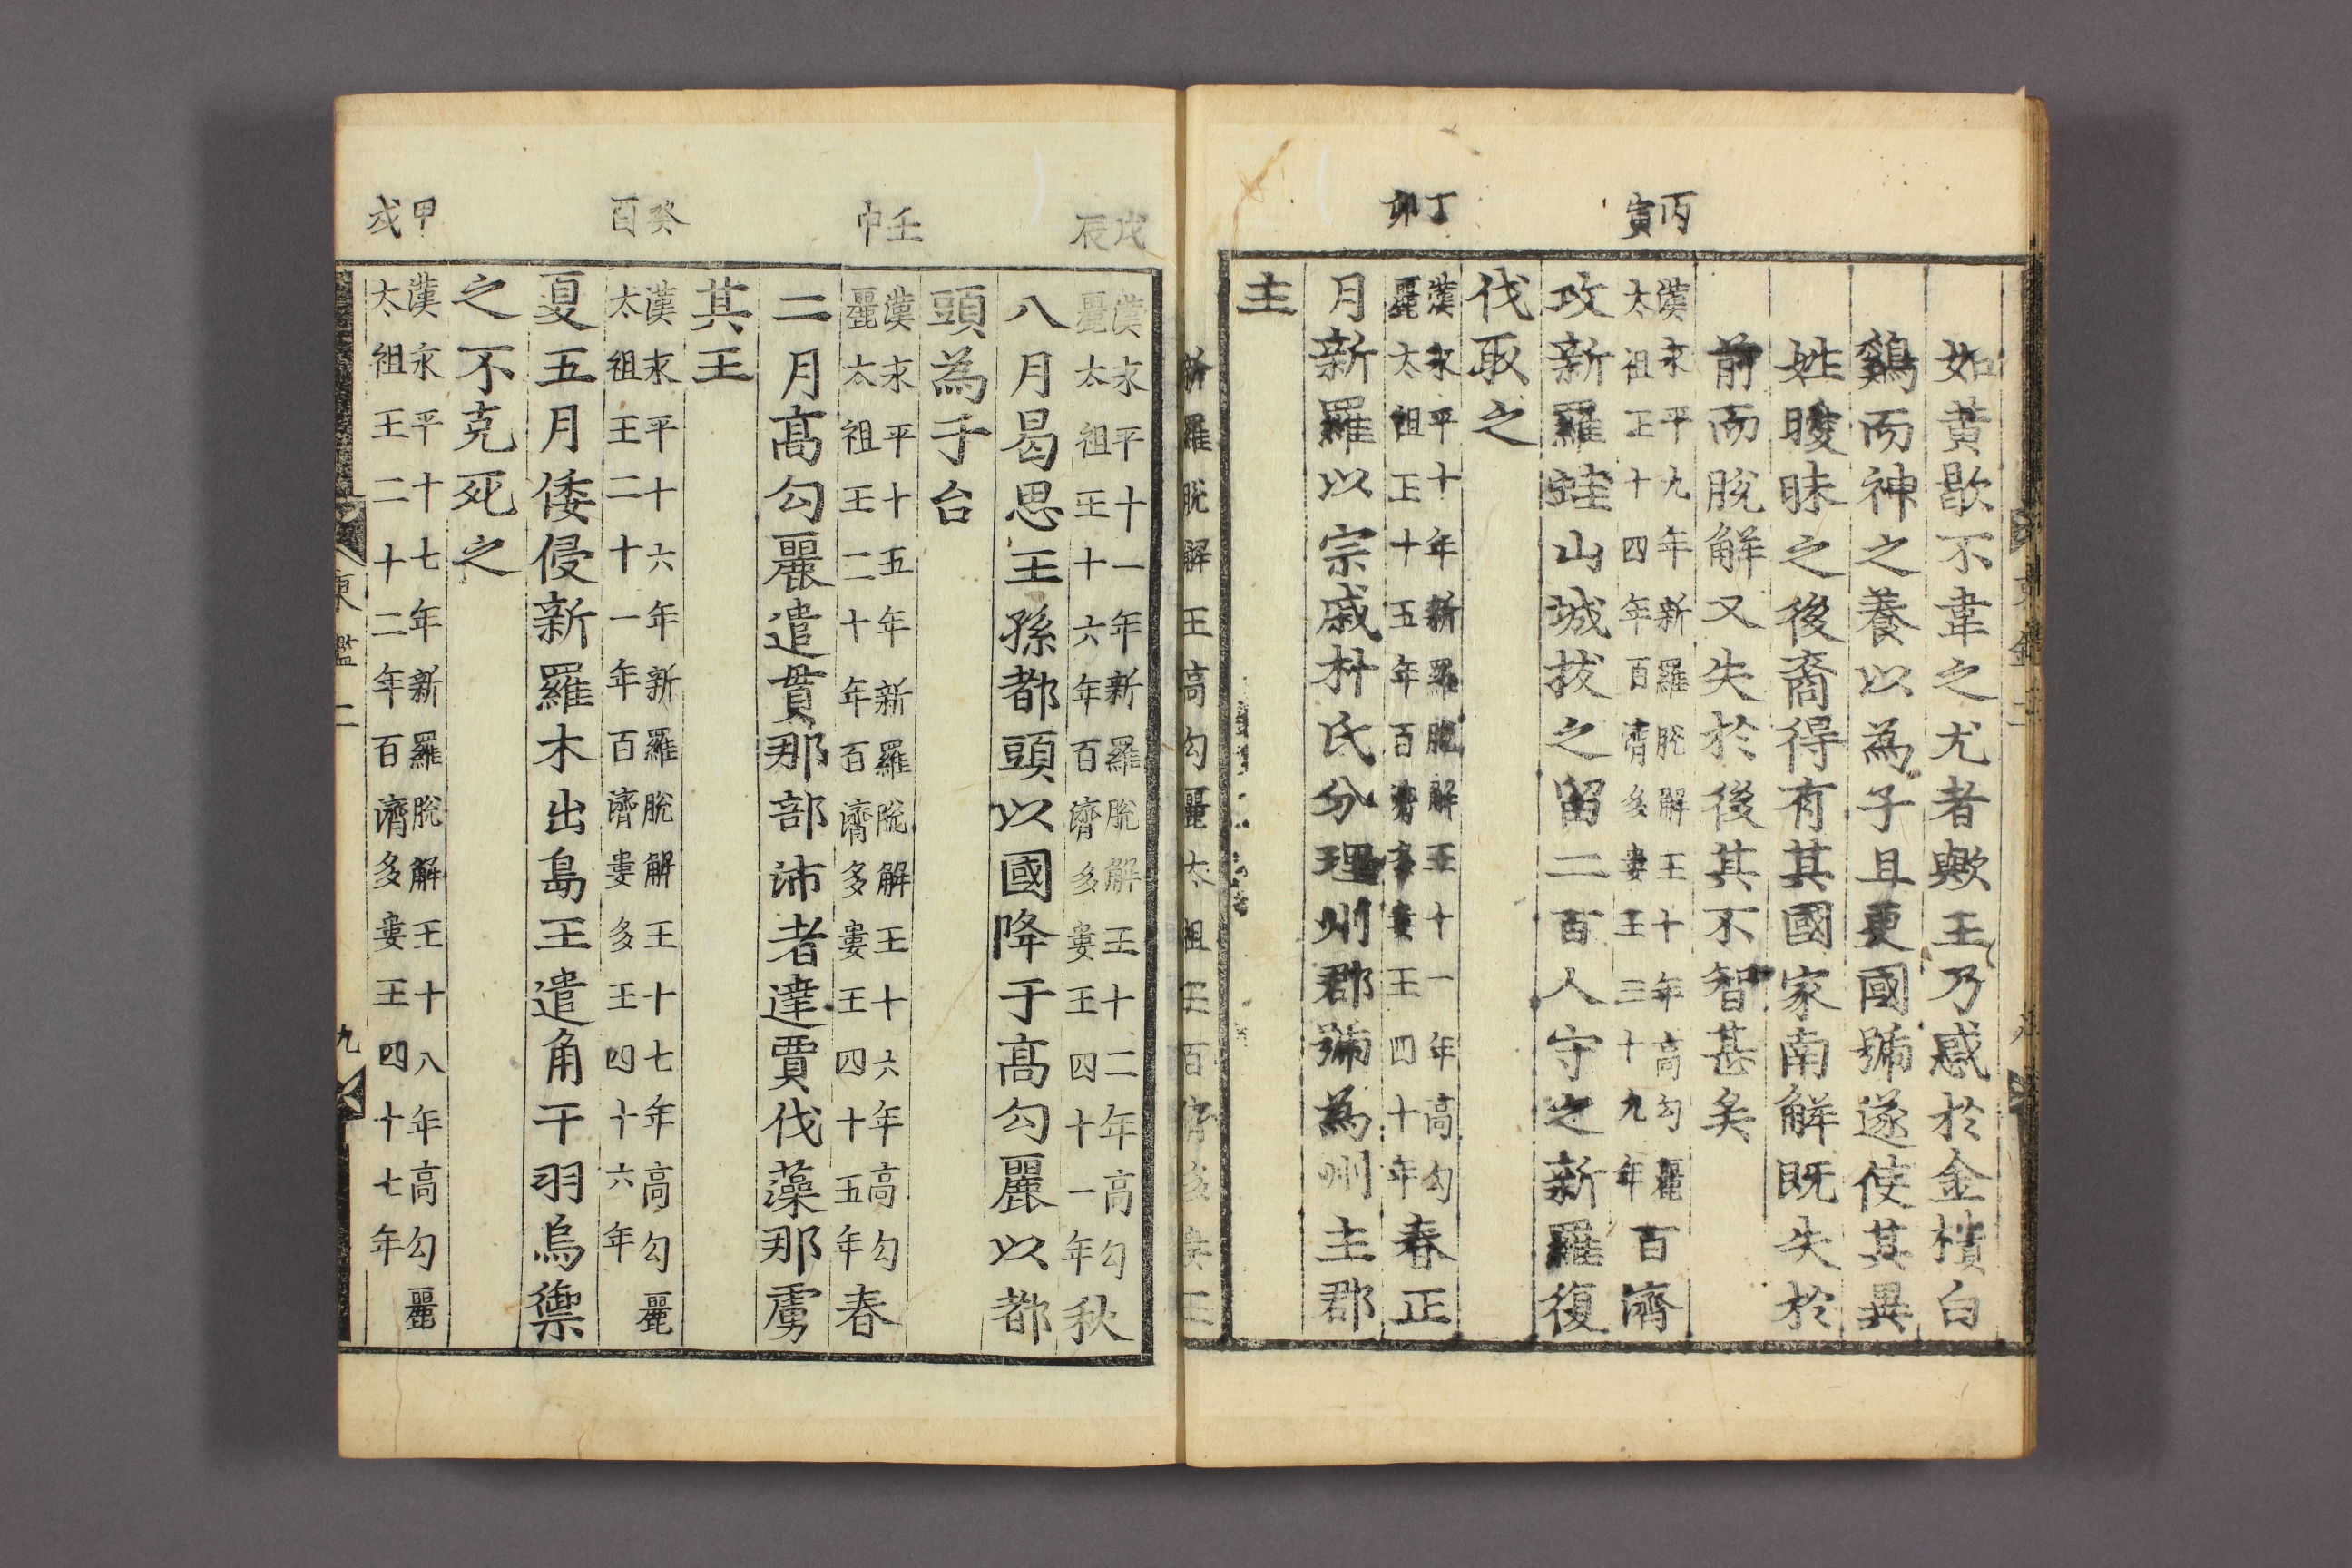 丙寅
丁卯
如黃歇不韋之尤者歟王乃惑於金櫝白
鷄而神之養以爲子且更國號遂使其異
姓曖昧之後裔得有其國家南解旣失於
前而脫解又失於後其不智甚矣
漢永平九年新羅脫解王十年高勾麗
太祖王十四年百濟多婁王三十九年
百濟
攻新羅蛙山城拔之留二百人守之新羅復
伐取之
漢永平十年新羅脫解王十一年高勾
麗太祖王十五年百濟多婁王四十年
春正
月新羅以宗戚朴氏分理州郡號爲州主郡
主
新羅脫解王高勾麗太祖王百濟多婁王
戊辰
壬申
癸酉
甲戌
漢永平十一年新羅脫解王十二年高勾
麗太祖王十六年百濟多婁王四十一年
秋
八月曷思王孫都頭以國降于高勾麗以都
頭爲于台
漢永平十五年新羅脫解王十六年高勾
麗太祖王二十年百濟多婁王四十五年
春
二月高勾麗遣貫那部沛者達賈伐藻那虜
其王
漢永平十六年新羅脫解王十七年高勾麗
太祖王二十一年百濟婁多王四十六年
夏五月倭侵新羅木出島王遣角干羽烏禦
之不克死之
漢永平十七年新羅脫解王十八年高勾麗
太祖王二十二年百濟多婁王四十七年
東鑑二
九